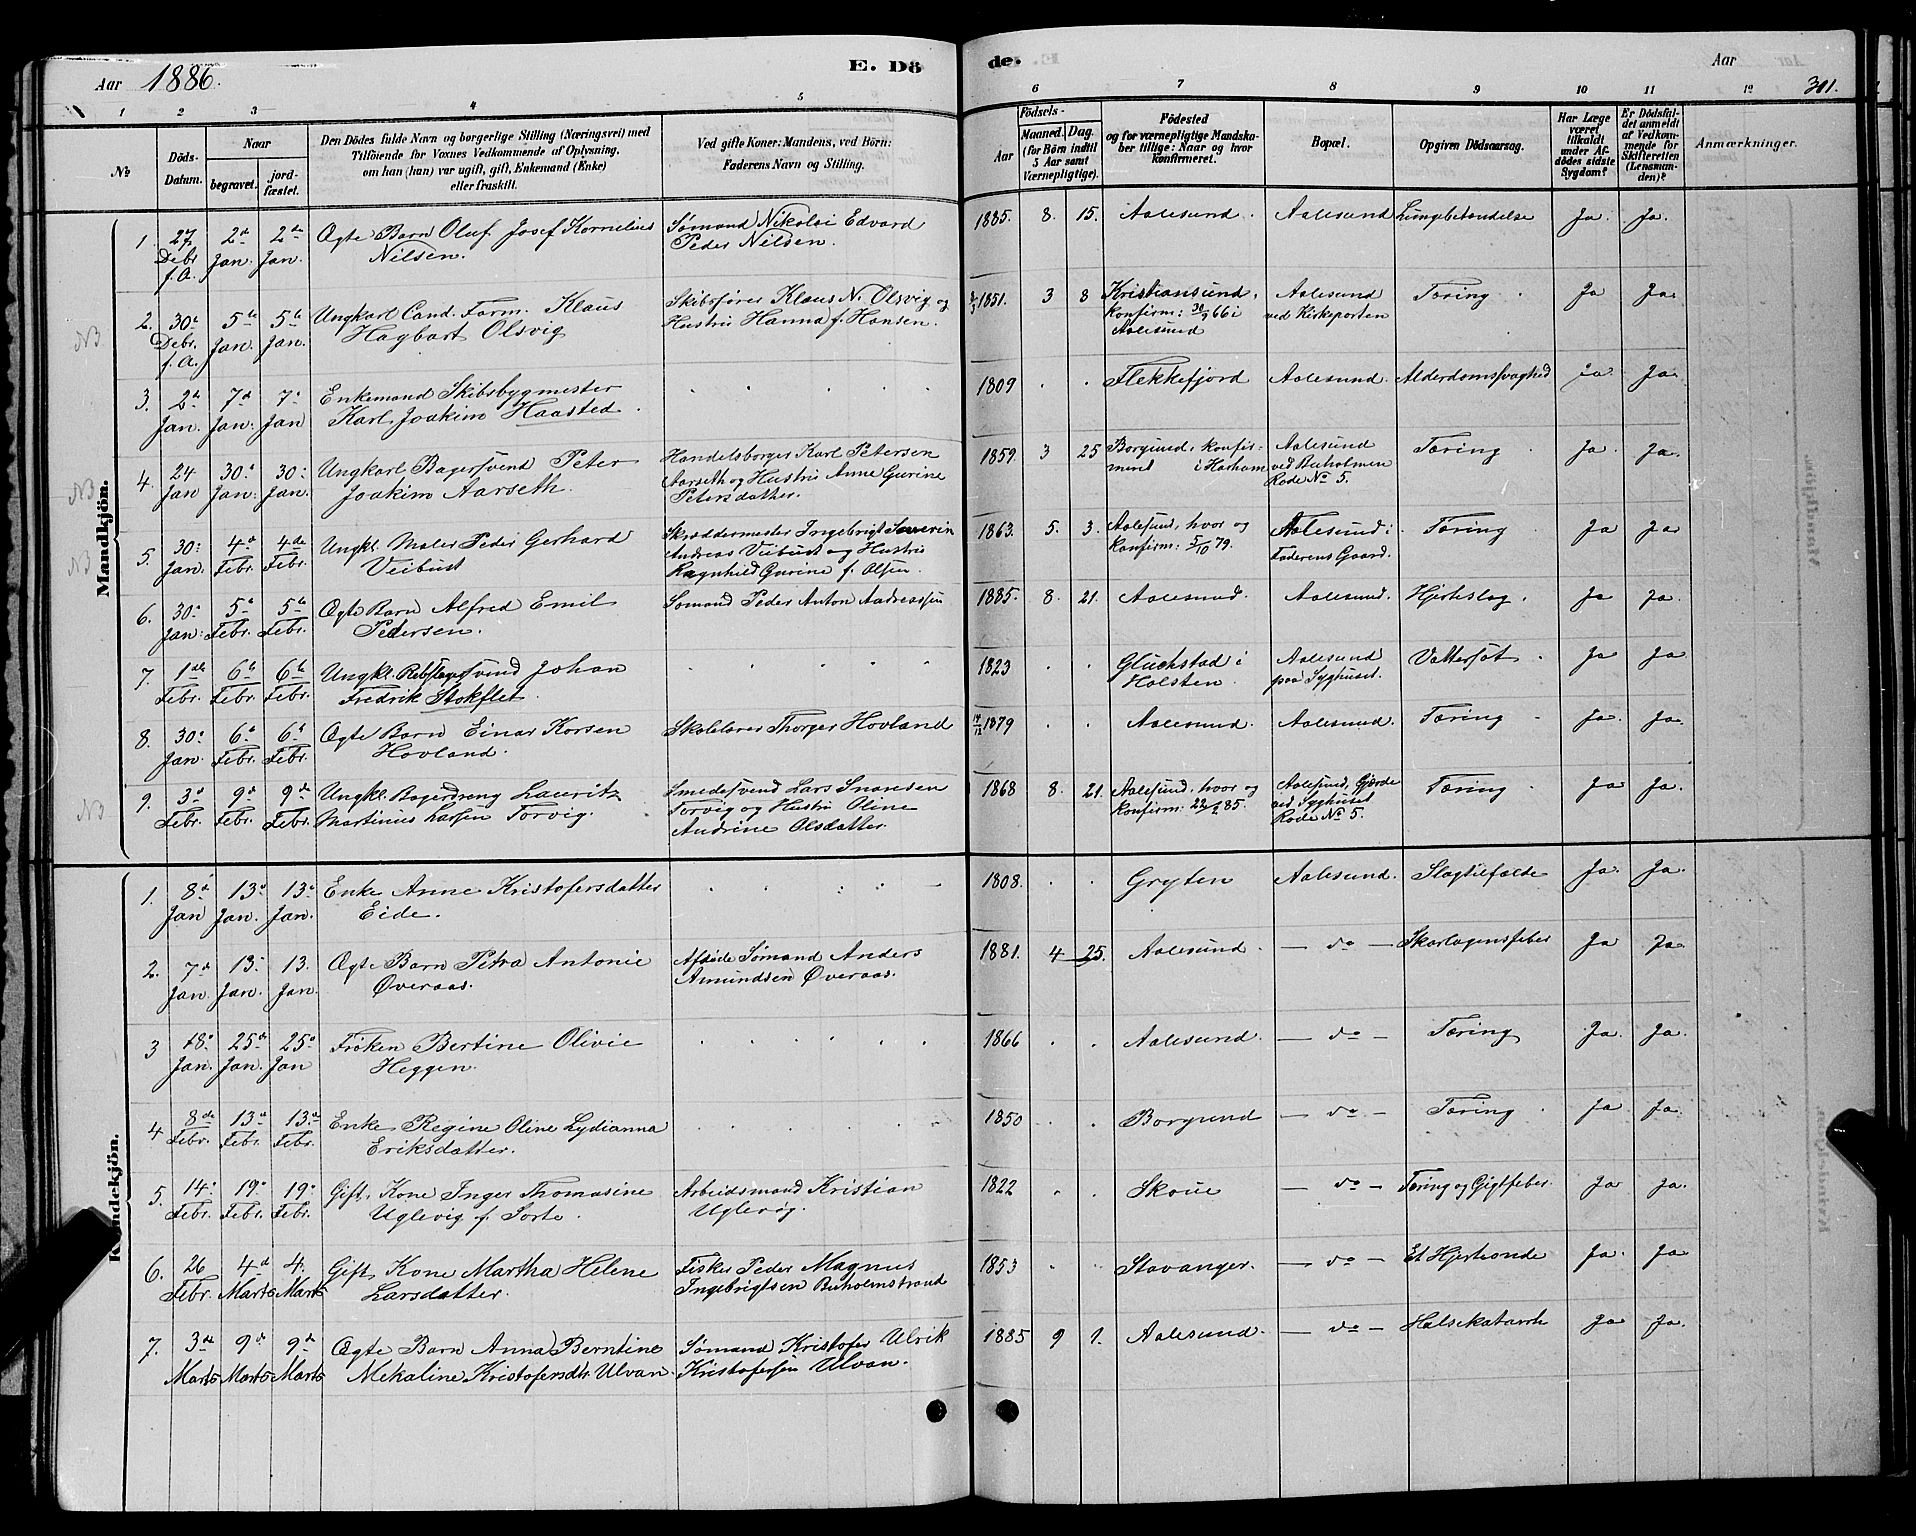 Aar 1886.
E. Dö
de.
Aar
301.
1 2 3 4 5 6 7 8 9 10 11 12
№
Döds-Datum.
Naar
begravet.
jordfæstet.
Den Dödes fulde Navn og borgerlige Stilling (Næringsvei) med
Tilföiende for Voxnes Vedkommende af Oplysning,
om han (hun) var ugift, gift, Enkemand (Enke)
eller fraskilt.
Ved gifte Koner: Mandens, ved Börn:
Faderens Navn og Stilling.
Födsels-
Aar
Maaned. Dag.
(for Börn indtil
5 Aar samt
Værnepligtige).
Födested
og for værnepligtige Mandska-
ber tillige: Naar og hvor
konfirmeret.
Bopæl.
Opgiven Dödsaarsag.
Har Læge
været
tilkaldt
under Af-
dödes sidste
Sygdom?
Er Dödsfal-
det anmeldt
af Vedkom-
mende for
Skifteretten
(Lensman-
den)?
Anmærkninger.
Mandkjön.
1. 27 Debr f.A. 2d Jan. 2de Jan. Ægte Barn Oluf Josef Kornelius Nilsen. Sømand Nikolai Edvard Peder Nilsen. 1885. 8. 15. Aalesund. Aalesund Lungebetændelse Ja. Ja.
NB 2. 30 Debr. f.A. 5te Jan. 5te Jan. Ungkarl Cand. Farm. Klaus Hagbart Olsvig Skibsfører Klaus N. Olsvig og Hustru Hanna f. Hansen. 1851. 3 8 Kristiansund, konfirm: 30/9 66 i Aalesund Aalesund ved Kirkeporten Tæring Ja Ja.
3. 2d Jan. 7d Jan. 7. Jan Enkemand Skibsbygmester Karl Joakim Haasted. 1809 Flekkefjord Aalesund. Alderdomssvaghed Ja Ja.
NB 4. 24 Jan 30. Jan. 30. Jan. Ungkarl Bagersvend Peter Joakim Aarseth. Handelsborger Karl Petersen Aarseth og Hustru Anne Gurine Petersdatter. 1859. 3 25 Borgund, konfirmeret i Harham Aalesund ved Buholmen Rode No 5. Tæring Ja. Ja.
NB 5. 30. Jan. 4d Febr. 4de Febr. Ungkl. Maler Peder Gerhard Veibust Skræddermester Ingebrigt Severin Andreas Veibust og Hustru Ragnhild Gurine f. Olsen. 1863. 5. 3. Aalesund, hvor og konfirm: 5/10 79. Aalesund i Faderens Gaard. Tæring Ja Ja
6. 30. Jan. 5te Febr. 5te Febr. Ægte Barn Alfred Emil Pedersen. Sømand Peder Anton Andreassen 1885. 8. 21. Aalesund. Aalesund. Hjerteslag. Ja Ja.
7. 1ste Febr. 6te Febr. 6te Febr. Ungkl. Rebslagersvend Johan Fredrik Stokflet. 1823 Gluckstad i Holsten. Aalesund paa Syghuset. Vattersot. Ja Ja
8. 30. Jan. 6te Febr. 6te Febr. Ægte Barn Einar Korsen Hovland. Skolelærer Thorger Hovland 1879 Aalesund. Aalesund. Tæring Ja. Ja.
NB 9. 3d Febr. 9d Febr. 9de Febr. Ungkl. Bagerdreng Lauritz Martinus Larsen Torvig. Smedesvend Lars Torvig og Hustru Oline Andrine Olsdatter. 1868 8. 21. Aalesund, hvor og konfirm: 85. Aalesund, Gjørde ved Syghuset Rode No 5. Tæring Ja Ja.
Kvindekjön.
1. 8d Jan 13d Jan. 13. Jan. Enke Anne Kristofersdatter Eide. 1808. Gryten Aalesund. Slagtilfælde Ja. Ja.
2. 7d Jan. 13. Jan. 13. Jan. Ægte Barn Petra Antonie Øveraas. Afdøde Sømand Anders Amundsen Øveraas. 1881. 4 25. Aalesund — do — Skarlagensfeber Ja Ja.
3 18. Jan. 25d Jan. 25. Jan Frøken Bertine Olivie Heggen. 1866 Aalesund. — do — Tæring Ja. Ja.
4 8de Febr. 13d Febr. 13d Febr. Enke Regine Oline Lydianna Eriksdatter. 1850 Borgund — do — Tæring Ja Ja.
5. 14. Febr. 19. Febr. 19. Febr. Gift Kone Inger Thomasine Uglevig f. Sorte. Arbeidsmand Kristian Uglevig. 1822 Skoue — do — Tæring og Gigtfeber Ja Ja.
6. 26 Febr. 4d Marts 4. Marts Gift Kone Martha Helene Larsdatter. Fisker Peder Magnus Ingebrigtsen Buholmstrand 1853 Stavanger. — do — Et Hjerteonde Ja. Ja
7. 3de Marts 9d Marts 9de Marts Ægte Barn Anna Berntine Mekaline Kristofersdtr. Ulvan. Sømand Kristofer Ulrik Kristofersen Ulvan. 1885 9 Aalesund. — do — Halskatarrh Ja Ja.